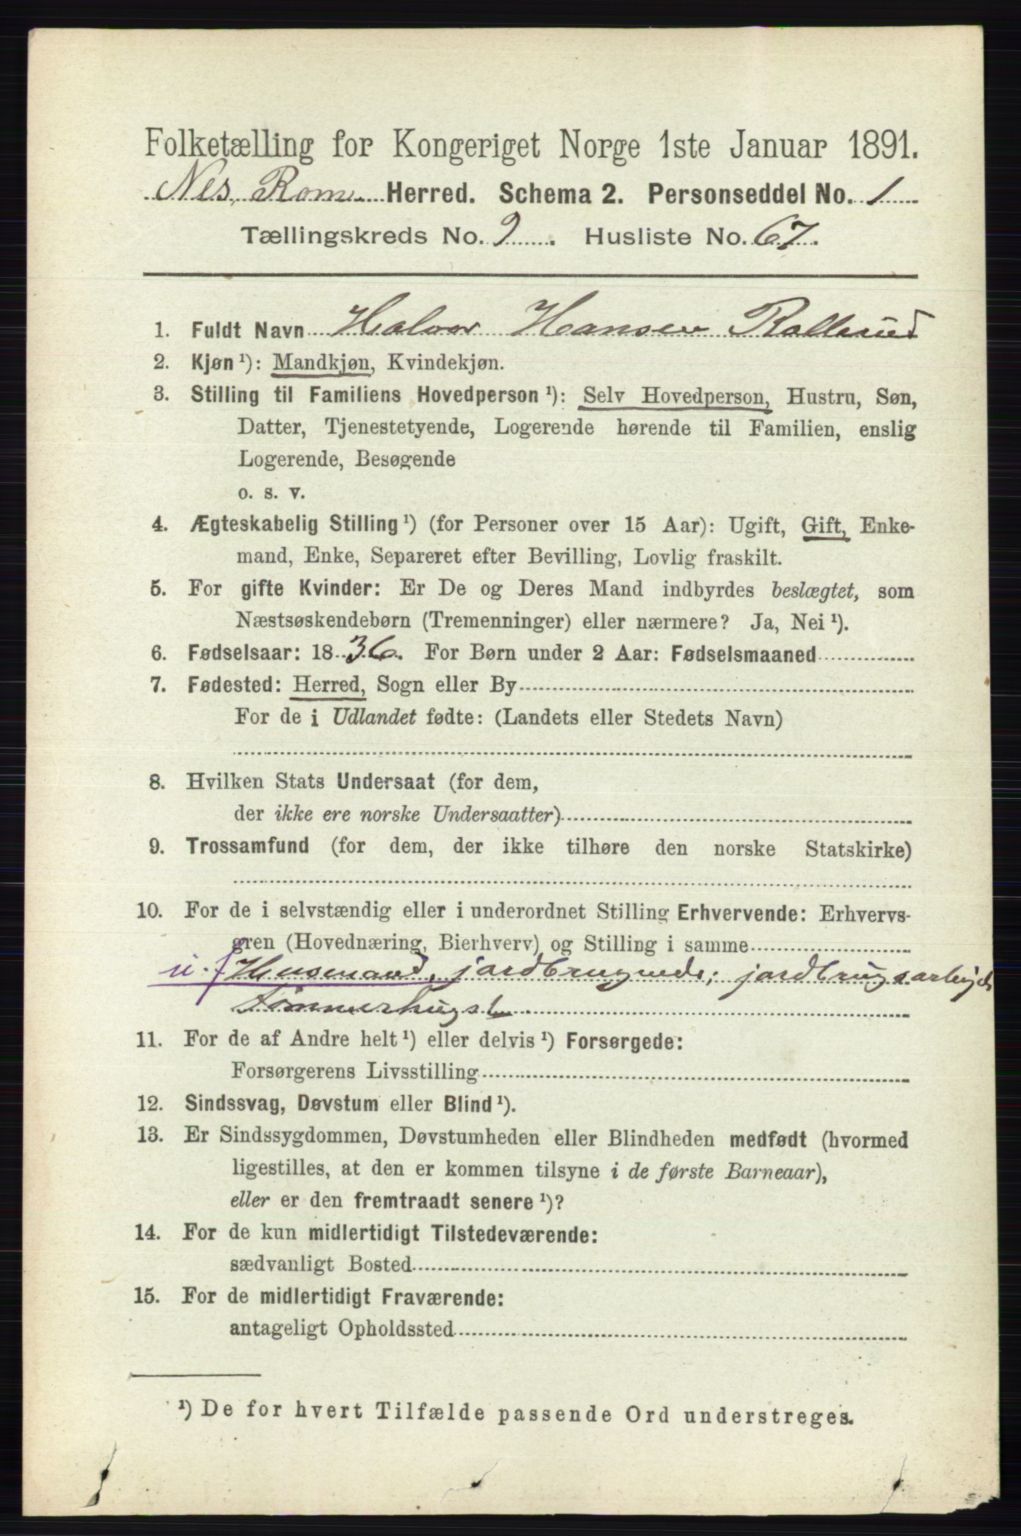 Folketælling for Kongeriget Norge 1ste Januar 1891.
Nes, Rom. Herred. Schema 2. Personseddel No. 1
Tællingskreds No. 9. Husliste No. 67.
1. Fuldt Navn Halvor Hansen Rallerud
2. Kjøn¹): Mandkjøn, Kvindekjøn.
3. Stilling til Familiens Hovedperson¹): Selv Hovedperson, Hustru, Søn,
Datter, Tjenestetyende, Logerende hørende til Familien, enslig
Logerende, Besøgende
o. s. v.
4. Ægteskabelig Stilling¹) (for Personer over 15 Aar): Ugift, Gift, Enke-
mand, Enke, Separeret efter Bevilling, Lovlig fraskilt.
5. For gifte Kvinder: Er De og Deres Mand indbyrdes beslægtet, som
Næstsøskendebørn (Tremenninger) eller nærmere? Ja, Nei¹).
6. Fødselsaar: 1836. For Børn under 2 Aar: Fødselsmaaned
7. Fødested: Herred, Sogn eller By
For de i Udlandet fødte: (Landets eller Stedets Navn)
8. Hvilken Stats Undersaat (for dem,
der ikke ere norske Undersaatter)
9. Trossamfund (for dem, der ikke tilhøre den norske Statskirke)
10. For de i selvstændig eller i underordnet Stilling Erhvervende: Erhvervs-
gren (Hovednæring, Bierhverv) og Stilling i samme
u. f Husmand, jordbrugende; jordbrugsarbejde
Tømmerhugst
11. For de af Andre helt¹) eller delvis¹) Forsørgede:
Forsørgerens Livsstilling
12. Sindssvag, Døvstum eller Blind¹).
13. Er Sindssygdommen, Døvstumheden eller Blindheden medfødt (hvormed
ligestilles, at den er kommen tilsyne i de første Barneaar),
eller er den fremtraadt senere¹)?
14. For de kun midlertidigt Tilstedeværende:
sædvanligt Bosted
15. For de midlertidigt Fraværende:
antageligt Opholdssted
¹) De for hvert Tilfælde passende Ord understreges.